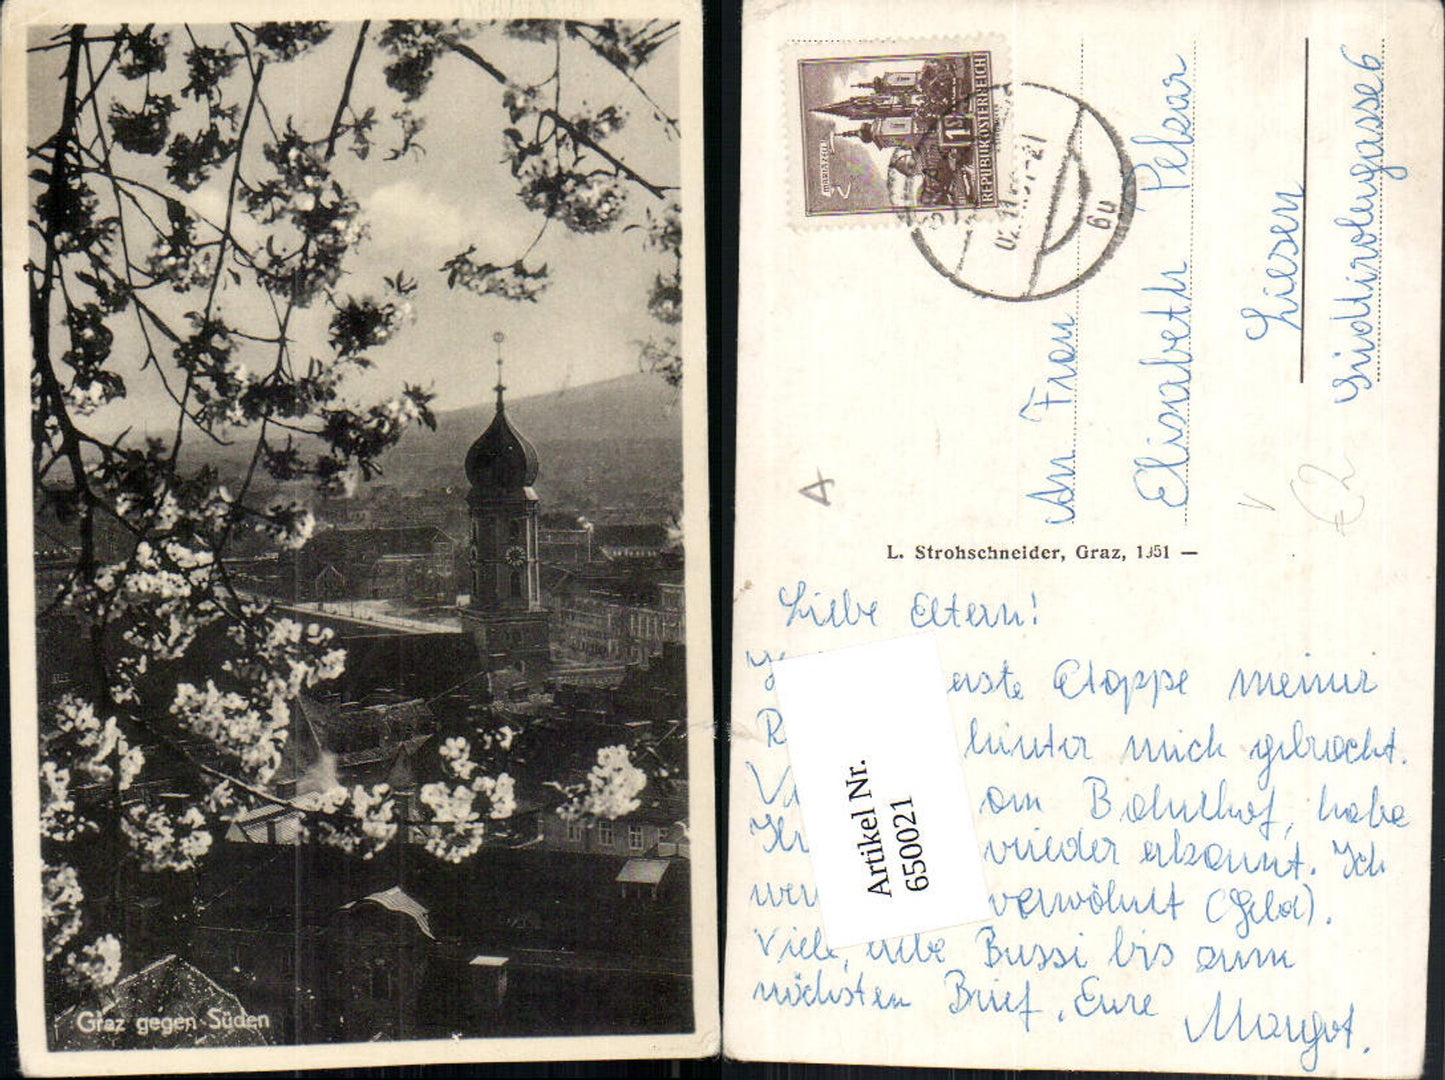 Graz gegen Süden
MARIAZELL
1S
REPUBLIK ÖSTERREICH
6u
An Frau
Elisabeth Pekar
Liesen
Südtirolergasse 6
€2
L. Strohschneider, Graz, 1951 —
Liebe Eltern!
erste Etappe meiner
hinter mich gebracht.
am Bahnhof, habe
wieder erkannt. Ich
verwöhnt (Geld).
Viele, liebe Bussi bis zum
nächsten Brief, Eure Margot.
Artikel Nr.
650021